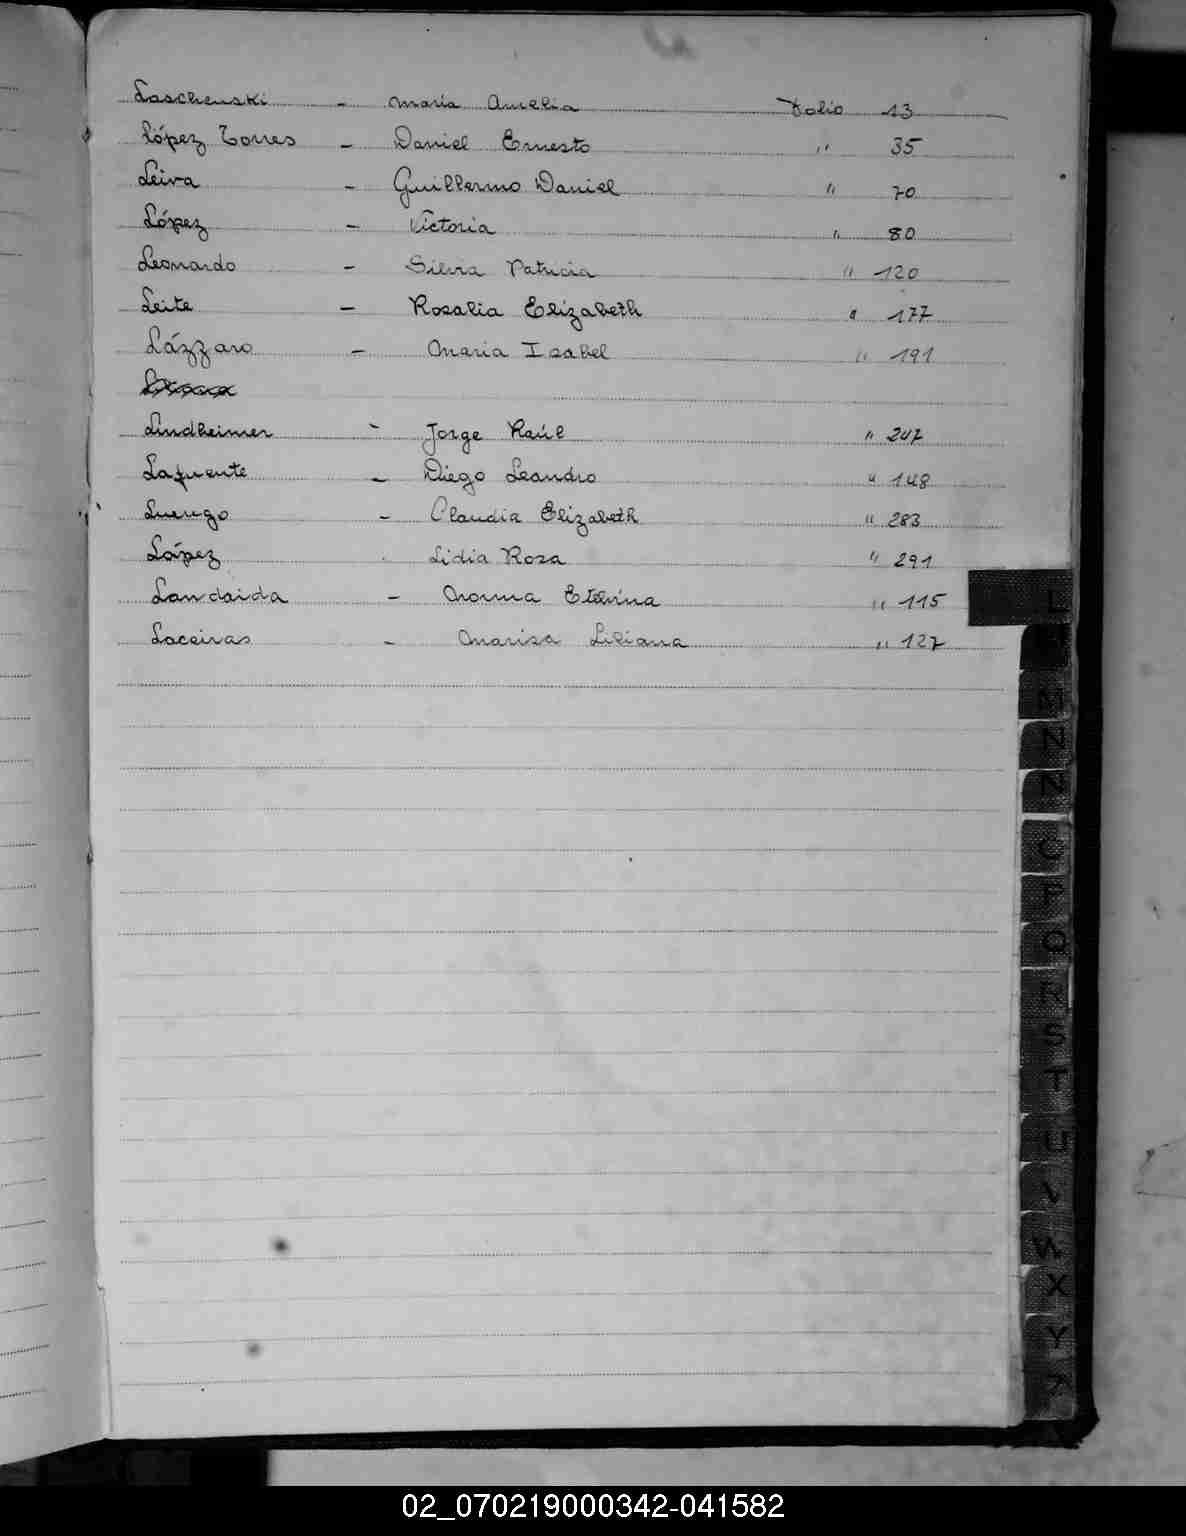 Laschenski - María Amelia Folio 13
López Torres - Daniel Ernesto " 35
Leiva - Guillermo Daniel " 70
López - Victoria " 80
Leonardo - Silvia Patricia " 120
Leite - Rosalia Elizabeth " 177
Lázzaro - María Isabel " 191
Lindheimer - Jorge Raúl " 247
Lafuente - Diego Leandro " 148
Luengo - Claudia Elizabeth " 283
López - Lidia Rosa " 291
Landaida - Norma Etelvina " 115
Laceiras - Marisa Liliana " 127
L
M
N
Ñ
O
P
Q
R
S
T
U
V
W
X
Y
Z
02_070219000342-041582